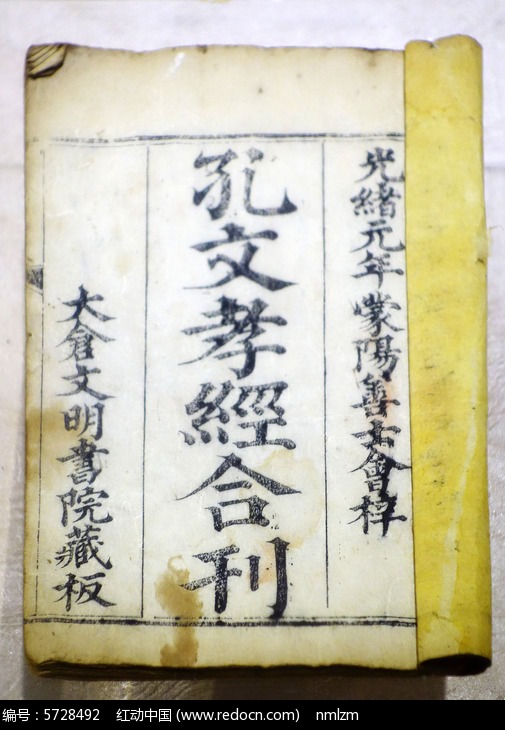 光緒元年蒙陽善士會梓
孔文孝經合刊
大倉文明書院藏板
编号：5728492 红动中国 (www.redocn.com) nmlzm